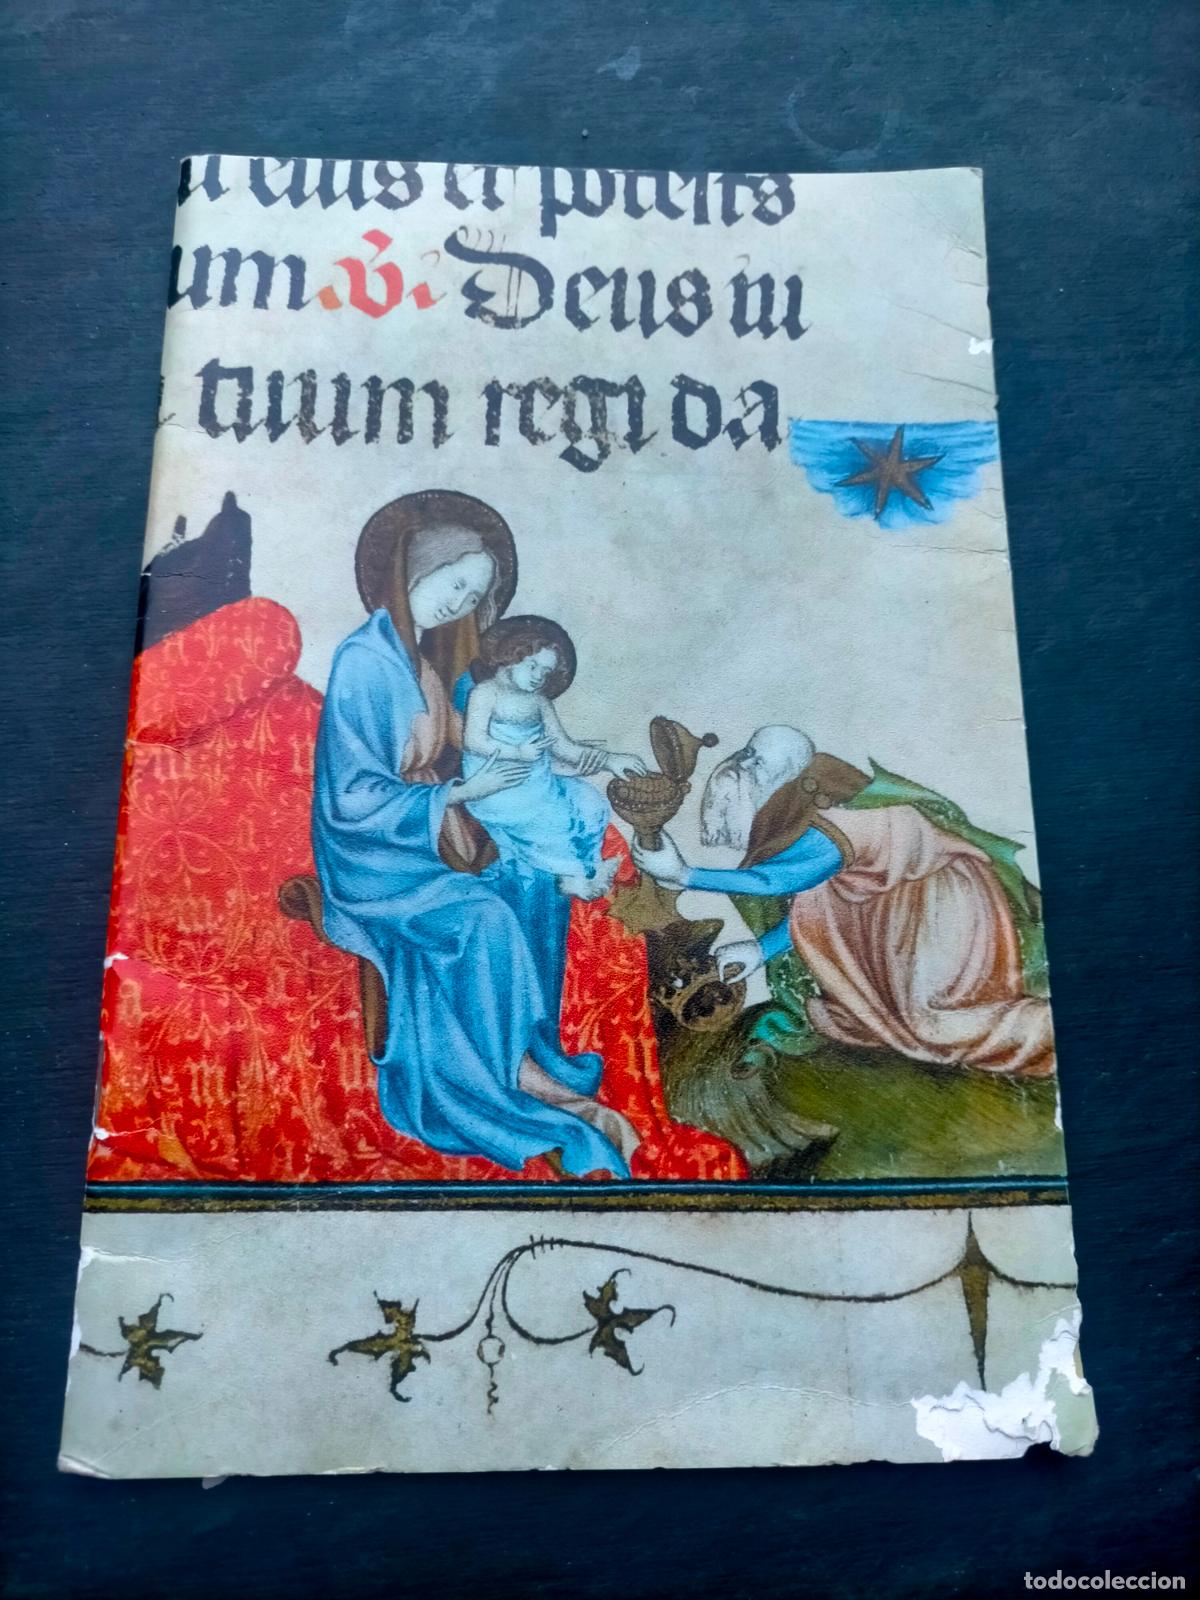 eius et potest
um. V. Deus iu
tuum regi da
todocoleccion